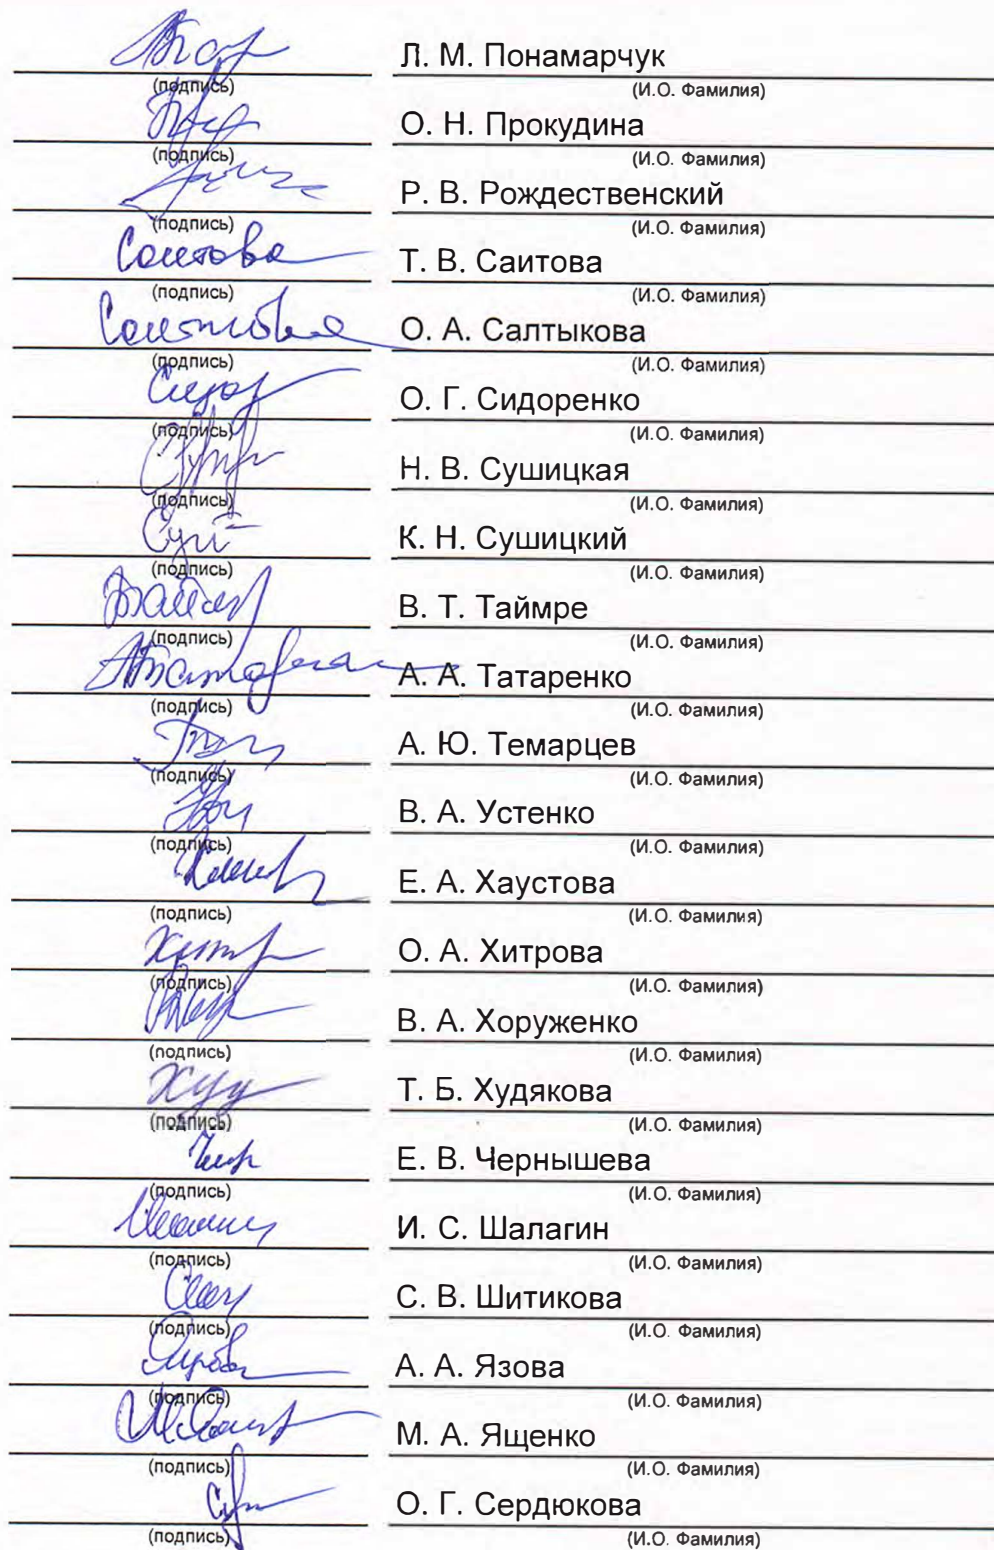 Л. М. Понамарчук
(подпись) (И.О. Фамилия)
О. Н. Прокудина
(подпись) (И.О. Фамилия)
Р. В. Рождественский
(подпись) (И.О. Фамилия)
Саитова Т. В. Саитова
(подпись) (И.О. Фамилия)
Салтыкова О. А. Салтыкова
(подпись) (И.О. Фамилия)
О. Г. Сидоренко
(подпись) (И.О. Фамилия)
Н. В. Сушицкая
(подпись) (И.О. Фамилия)
К. Н. Сушицкий
(подпись) (И.О. Фамилия)
В. Т. Таймре
(подпись) (И.О. Фамилия)
А. А. Татаренко
(подпись) (И.О. Фамилия)
А. Ю. Темарцев
(подпись) (И.О. Фамилия)
В. А. Устенко
(подпись) (И.О. Фамилия)
Е. А. Хаустова
(подпись) (И.О. Фамилия)
О. А. Хитрова
(подпись) (И.О. Фамилия)
В. А. Хоруженко
(подпись) (И.О. Фамилия)
Т. Б. Худякова
(подпись) (И.О. Фамилия)
Е. В. Чернышева
(подпись) (И.О. Фамилия)
И. С. Шалагин
(подпись) (И.О. Фамилия)
С. В. Шитикова
(подпись) (И.О. Фамилия)
А. А. Язова
(подпись) (И.О. Фамилия)
М. А. Ященко
(подпись) (И.О. Фамилия)
О. Г. Сердюкова
(подпись) (И.О. Фамилия)